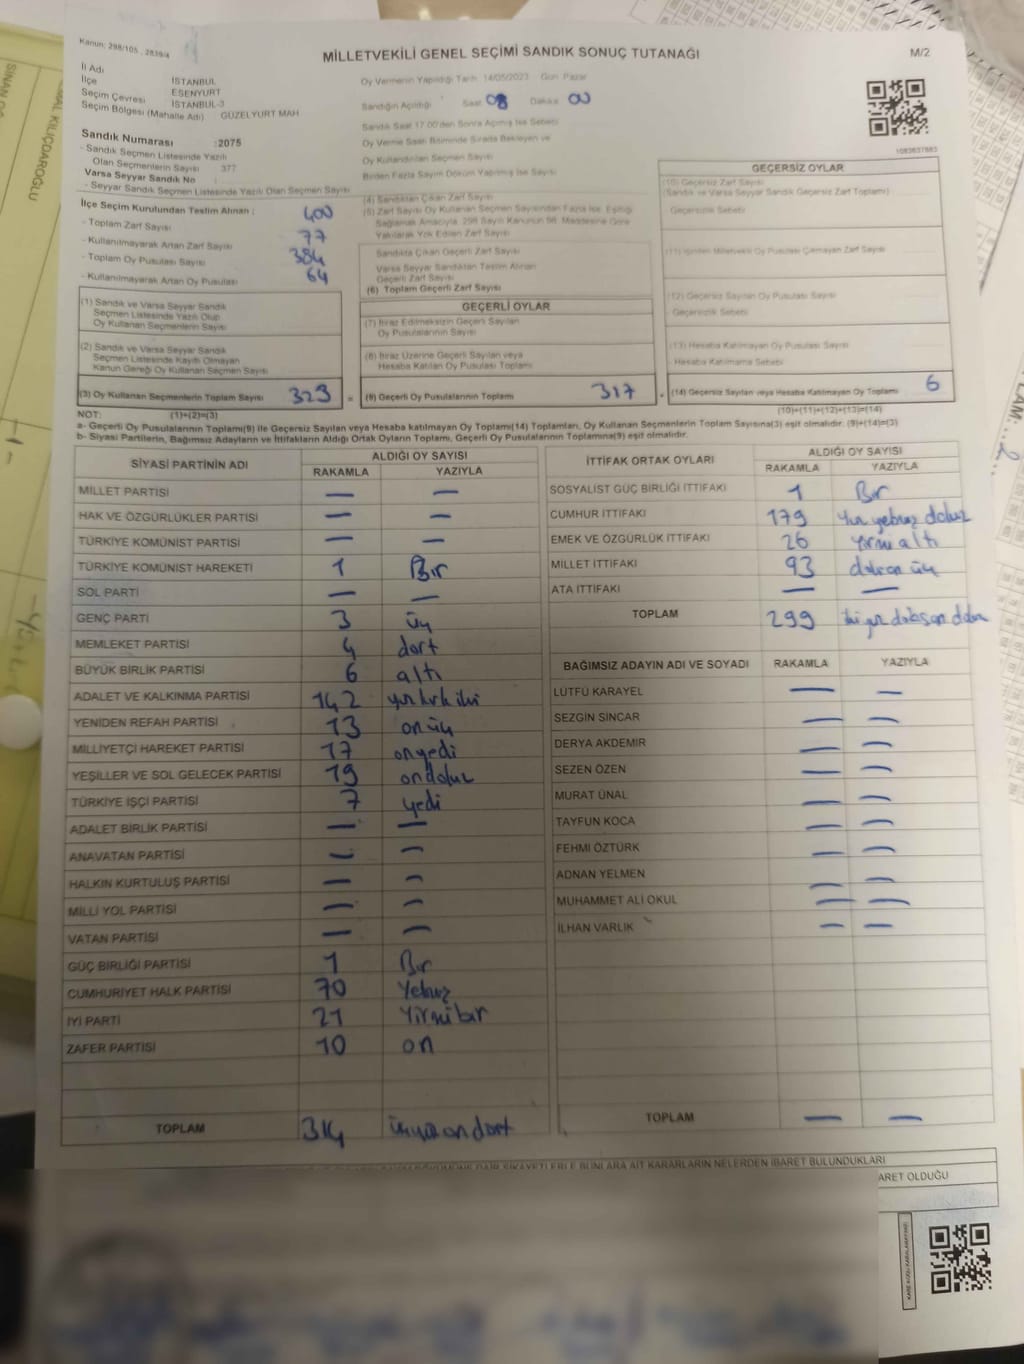 Kanun: 298/105 , 2839/4
MİLLETVEKİLİ GENEL SEÇİMİ SANDIK SONUÇ TUTANAĞI
M/2
İl Adı İSTANBUL
İlçe ESENYURT
Seçim Çevresi İSTANBUL-3
Seçim Bölgesi (Mahalle Adı) GÜZELYURT MAH
Oy Vermenin Yapıldığı Tarih 14/05/2023 Gün Pazar
Sandığın Açıldığı Saat 08 Dakika 00
Sandık Saat 17:00'den Sonra Açılmış İse Sebebi
Oy Verme Saati Bitiminde Sırada Bekleyen ve
Oy Kullandırılan Seçmen Sayısı
Birden Fazla Sayım Döküm Yapılmış İse Sayısı
1083637883
Sandık Numarası :2075
- Sandık Seçmen Listesinde Yazılı
Olan Seçmenlerin Sayısı 377
Varsa Seyyar Sandık No :
- Seyyar Sandık Seçmen Listesinde Yazılı Olan Seçmen Sayısı
İlçe Seçim Kurulundan Teslim Alınan :
- Toplam Zarf Sayısı 400
- Kullanılmayarak Artan Zarf Sayısı 77
- Toplam Oy Pusulası Sayısı 384
- Kullanılmayarak Artan Oy Pusulası 64
(1) Sandık ve Varsa Seyyar Sandık
Seçmen Listesinde Yazılı Olup
Oy Kullanan Seçmenlerin Sayısı
(2) Sandık ve Varsa Seyyar Sandık
Seçmen Listesinde Kayıtlı Olmayan
Kanun Gereği Oy Kullanan Seçmen Sayısı
(3) Oy Kullanan Seçmenlerin Toplam Sayısı 323 =
(4) Sandıktan Çıkan Zarf Sayısı
(5) Zarf Sayısı Oy Kullanan Seçmen Sayısından Fazla İse, Eşitliği
Sağlamak Amacıyla, 298 Sayılı Kanunun 98. Maddesine Göre
Yakılarak Yok Edilen Zarf Sayısı
Sandıkta Çıkan Geçerli Zarf Sayısı
Varsa Seyyar Sandıktan Teslim Alınan
Geçerli Zarf Sayısı
(6) Toplam Geçerli Zarf Sayısı
GEÇERLİ OYLAR
(7) İtiraz Edilmeksizin Geçerli Sayılan
Oy Pusulalarının Sayısı
(8) İtiraz Üzerine Geçerli Sayılan veya
Hesaba Katılan Oy Pusulası Toplamı
(9) Geçerli Oy Pusulalarının Toplamı 317
GEÇERSİZ OYLAR
(10) Geçersiz Zarf Sayısı
(Sandık ve Varsa Seyyar Sandık Geçersiz Zarf Toplamı)
Geçersizlik Sebebi
(11) İçinden Milletvekili Oy Pusulası Çıkmayan Zarf Sayısı
(12) Geçersiz Sayılan Oy Pusulası Sayısı
Geçersizlik Sebebi
(13) Hesaba Katılmayan Oy Pusulası Sayısı
- Hesaba Katılmama Sebebi
(14) Geçersiz Sayılan veya Hesaba Katılmayan Oy Toplamı 6
NOT: (1)+(2)=(3)
(10)+(11)+(12)+(13)=(14)
a- Geçerli Oy Pusulalarının Toplamı(9) ile Geçersiz Sayılan veya Hesaba katılmayan Oy Toplamı(14) Toplamları, Oy Kullanan Seçmenlerin Toplam Sayısına(3) eşit olmalıdır. (9)+(14)=(3)
b- Siyasi Partilerin, Bağımsız Adayların ve İttifakların Aldığı Ortak Oyların Toplamı, Geçerli Oy Pusulalarının Toplamına(9) eşit olmalıdır.
SİYASİ PARTİNİN ADI ALDIĞI OY SAYISI
RAKAMLA YAZIYLA
MİLLET PARTİSİ — —
HAK VE ÖZGÜRLÜKLER PARTİSİ — —
TÜRKİYE KOMÜNİST PARTİSİ — —
TÜRKİYE KOMÜNİST HAREKETİ 1 Bir
SOL PARTİ — —
GENÇ PARTİ 3 üç
MEMLEKET PARTİSİ 4 dort
BÜYÜK BİRLİK PARTİSİ 6 altı
ADALET VE KALKINMA PARTİSİ 142 yüzkırkiki
YENİDEN REFAH PARTİSİ 13 onüç
MİLLİYETÇİ HAREKET PARTİSİ 17 onyedi
YEŞİLLER VE SOL GELECEK PARTİSİ 19 ondokuz
TÜRKİYE İŞÇİ PARTİSİ 7 yedi
ADALET BİRLİK PARTİSİ — —
ANAVATAN PARTİSİ — —
HALKIN KURTULUŞ PARTİSİ — —
MİLLİ YOL PARTİSİ — —
VATAN PARTİSİ — —
GÜÇ BİRLİĞİ PARTİSİ 1 Bir
CUMHURİYET HALK PARTİSİ 70 Yetmiş
İYİ PARTİ 21 Yirmibir
ZAFER PARTİSİ 10 on
TOPLAM 314 üçyüzondort
İTTİFAK ORTAK OYLARI ALDIĞI OY SAYISI
RAKAMLA YAZIYLA
SOSYALİST GÜÇ BİRLİĞİ İTTİFAKI 1 Bir
CUMHUR İTTİFAKI 179 yüz yetmiş dokuz
EMEK VE ÖZGÜRLÜK İTTİFAKI 26 yirmi altı
MİLLET İTTİFAKI 93 doksan üç
ATA İTTİFAKI — —
TOPLAM 299 iki yüz doksan dokuz
BAĞIMSIZ ADAYIN ADI VE SOYADI RAKAMLA YAZIYLA
LÜTFÜ KARAYEL — —
SEZGİN SİNCAR — —
DERYA AKDEMİR — —
SEZEN ÖZEN — —
MURAT ÜNAL — —
TAYFUN KOCA — —
FEHMİ ÖZTÜRK — —
ADNAN YELMEN — —
MUHAMMET ALİ OKUL — —
İLHAN VARLIK — —
TOPLAM — —
ŞİKAYETLERLE BUNLARA AİT KARARLARIN NELERDEN İBARET BULUNDUKLARI
ARET OLDUĞU